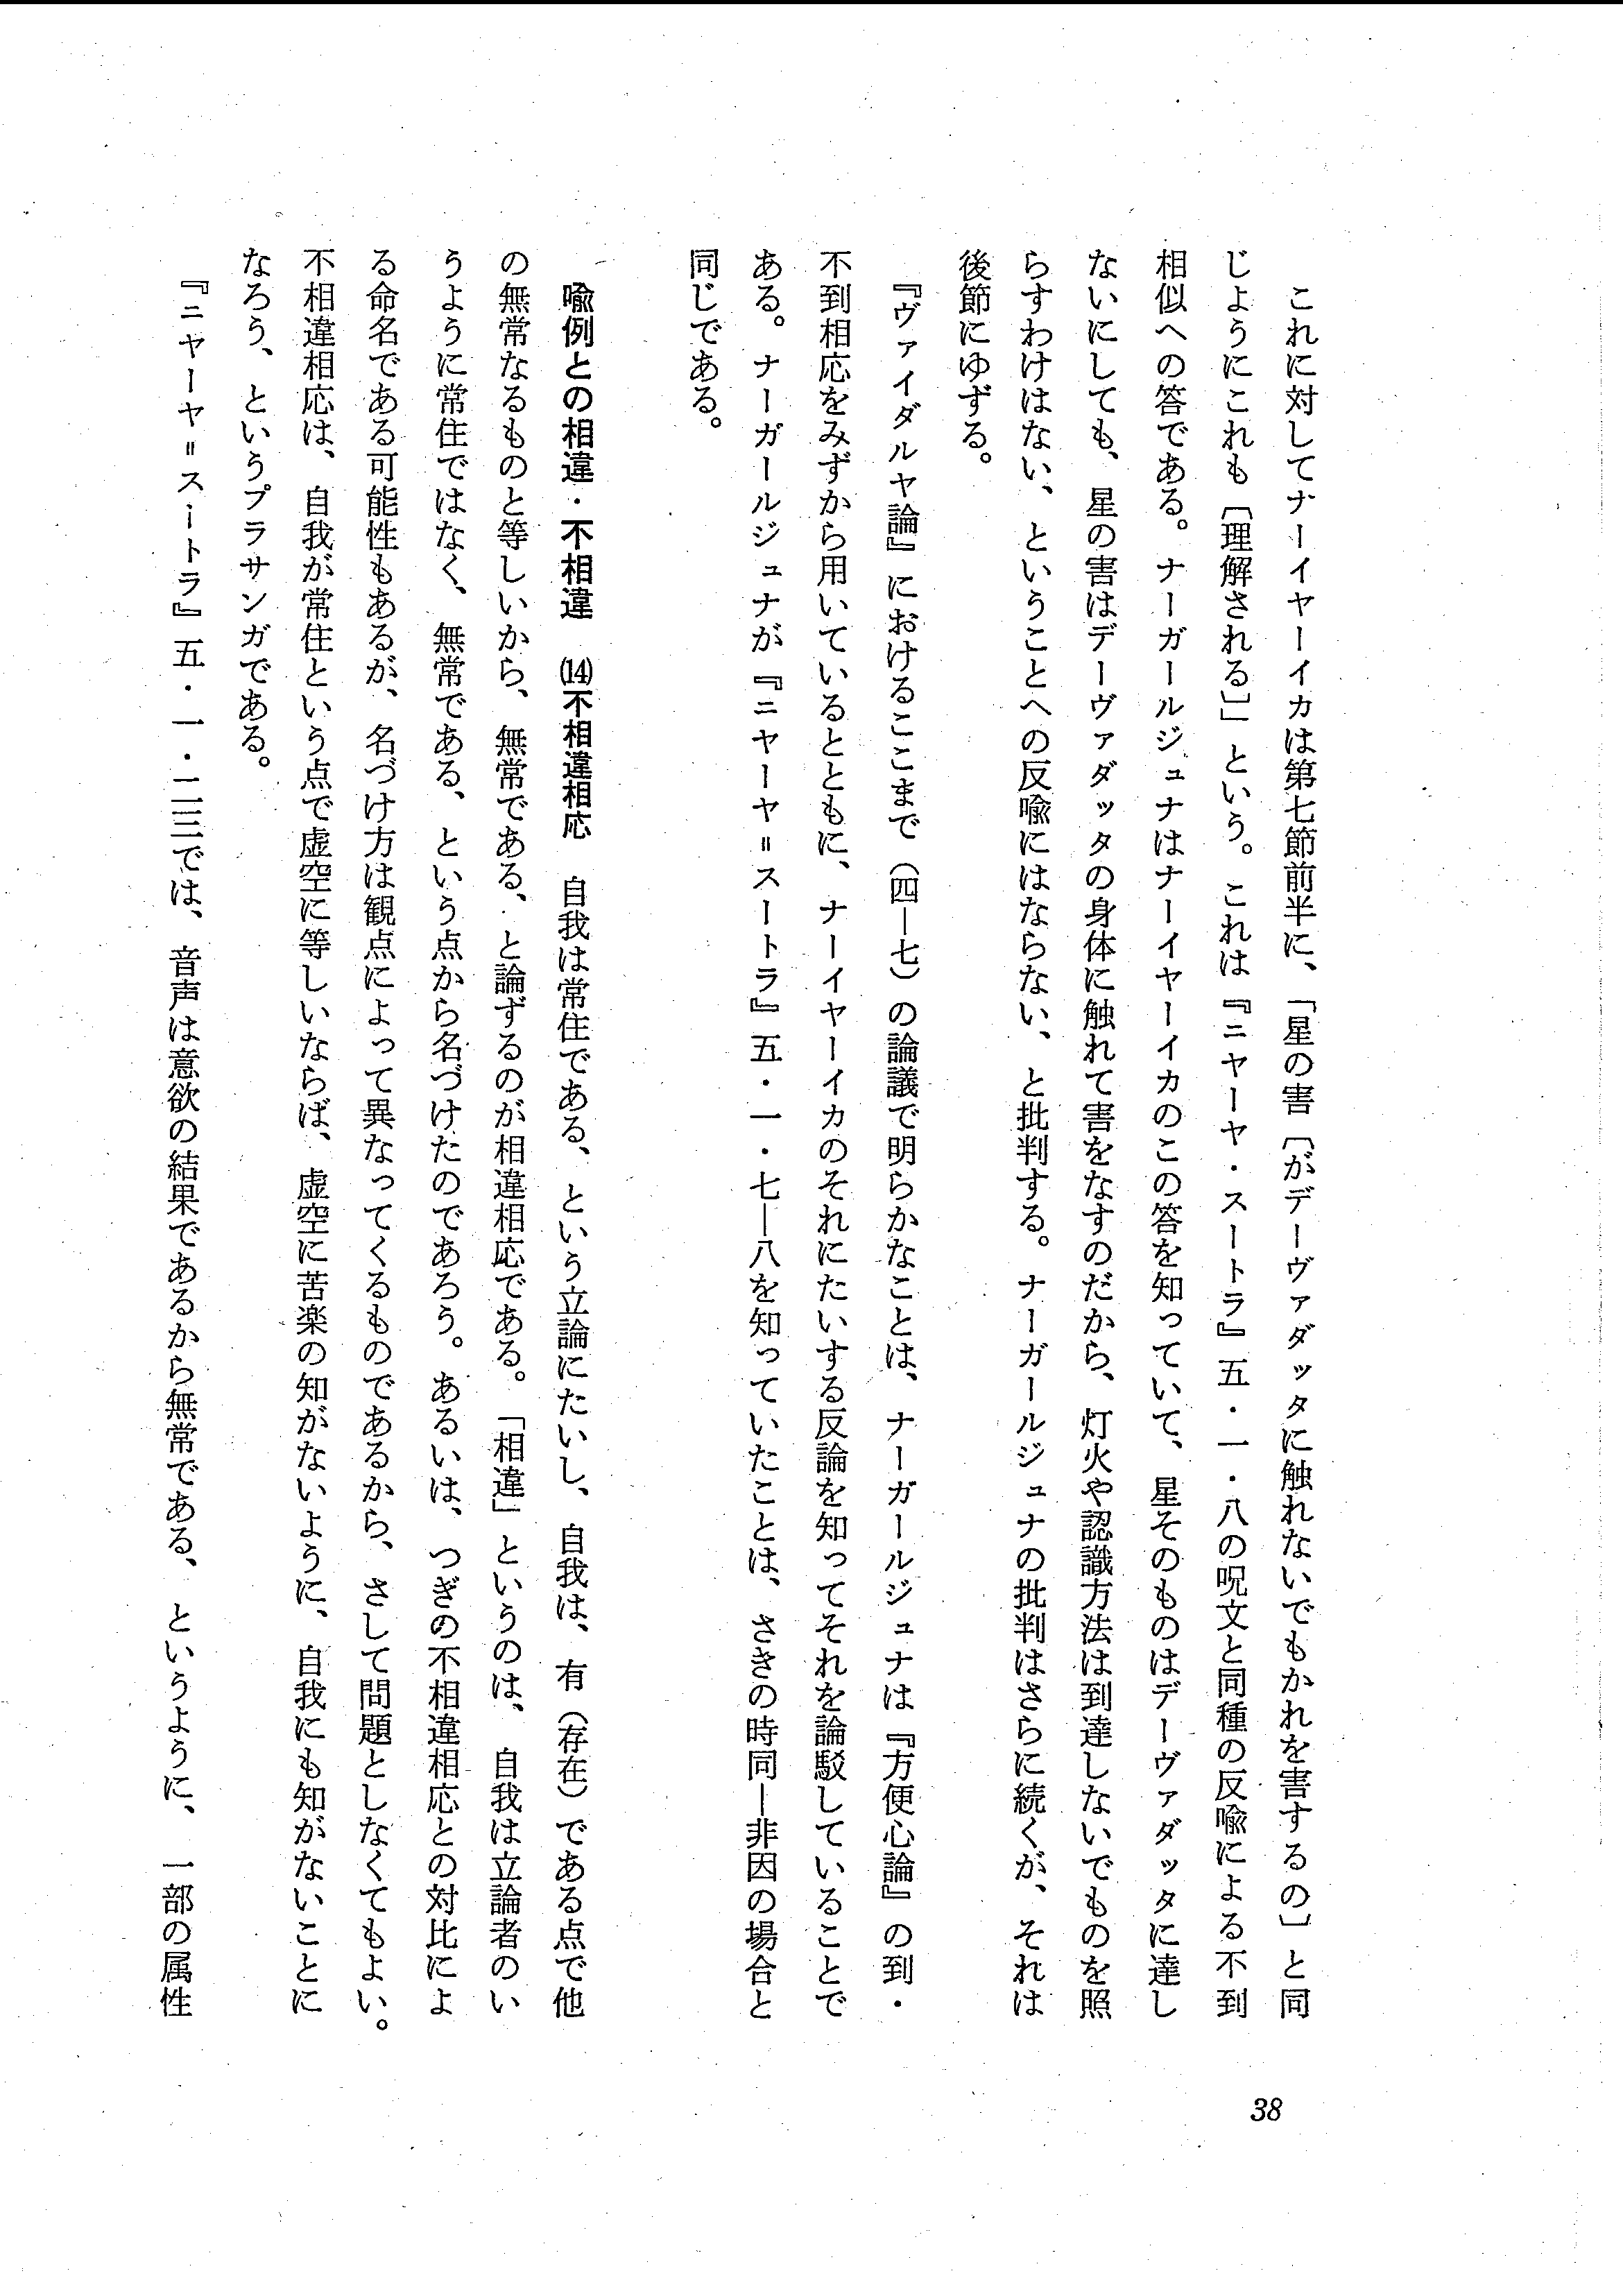 これに対してナーイヤーイカは第七節前半に、「星の害〔がデーヴァダッタに触れないでもかれを害するの〕と同
じようにこれも〔理解される〕」という。これは『ニヤーヤ・スートラ』五・一・八の呪文と同種の反喩による不到
相似への答である。ナーガールジュナはナーイヤーイカのこの答を知っていて、星そのものはデーヴァダッタに達し
ないにしても、星の害はデーヴァダッタの身体に触れて害をなすのだから、灯火や認識方法は到達しないでものを照
らすわけはない、ということへの反喩にはならない、と批判する。ナーガールジュナの批判はさらに続くが、それは
後節にゆずる。
『ヴァイダルヤ論』におけるここまで（四―七）の論議で明らかなことは、ナーガールジュナは『方便心論』の到・
不到相応をみずから用いているとともに、ナーイヤーイカのそれにたいする反論を知ってそれを論駁していることで
ある。ナーガールジュナが『ニヤーヤ＝スートラ』五・一・七―八を知っていたことは、さきの時同―非因の場合と
同じである。
喩例との相違・不相違　⒁不相違相応　自我は常住である、という立論にたいし、自我は、有（存在）である点で他
の無常なるものと等しいから、無常である、と論ずるのが相違相応である。「相違」というのは、自我は立論者のい
うように常住ではなく、無常である、という点から名づけたのであろう。あるいは、つぎの不相違相応との対比によ
る命名である可能性もあるが、名づけ方は観点によって異なってくるものであるから、さして問題としなくてもよい。
不相違相応は、自我が常住という点で虚空に等しいならば、虚空に苦楽の知がないように、自我にも知がないことに
なろう、というプラサンガである。
『ニヤーヤ＝スートラ』五・一・二三では、音声は意欲の結果であるから無常である、というように、一部の属性
38